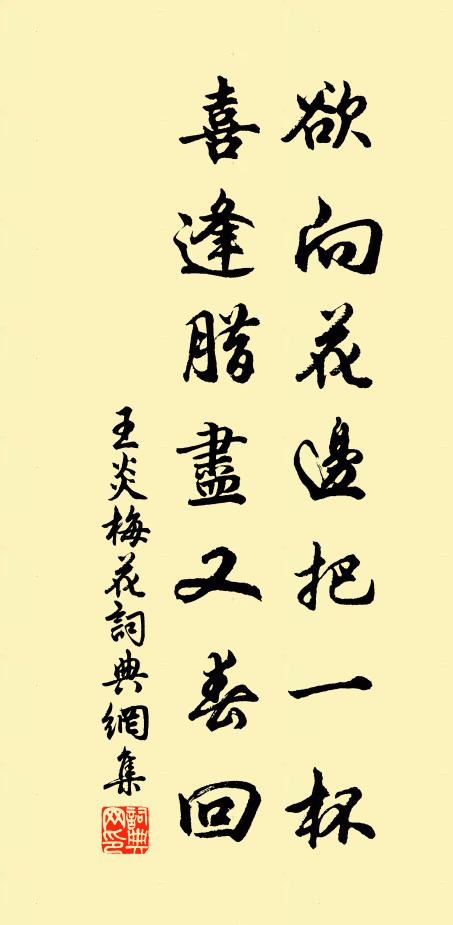 欲向花邊把一杯
喜逢腊盡又春回
王炎梅花詞典網集
詞典網印